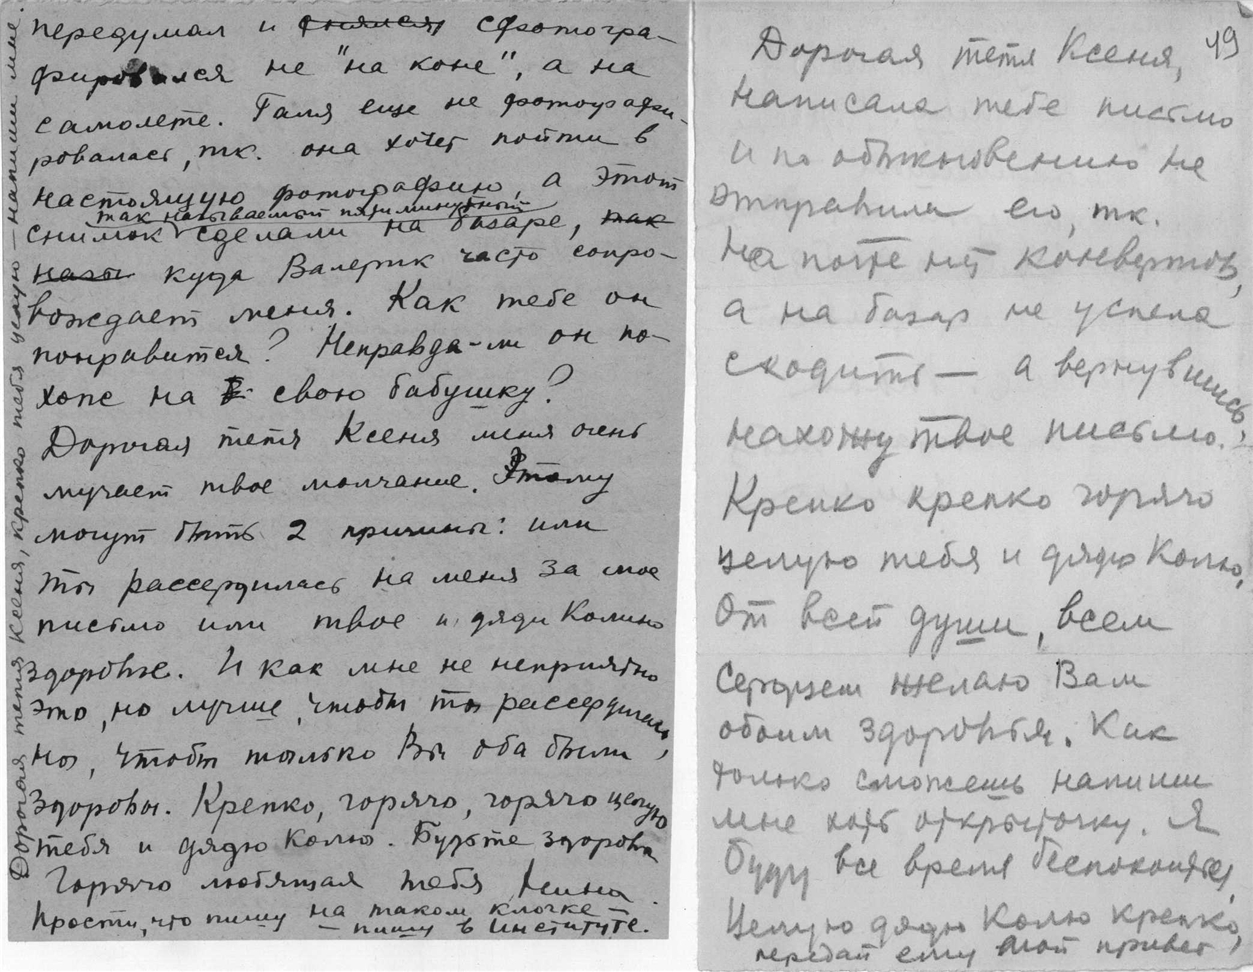 передумал и снялся сфотогра-
фировался не "на коне", а на
самолете. Галя еще не фотографи-
ровалась, т.к. она хочет пойти в
настоящую фотографию, а этот
так называемый пятиминутный
снимок сделали на базаре, так
назы куда Валерик часто сопро-
вождает меня. Как тебе он
понравится? Неправда-ли он по-
хож на свою бабушку?
Дорогая тетя Ксеня меня очень
мучает твое молчание. Этому
могут быть 2 причины: или
ты рассердилась на меня за мое
письмо или твое и дяди Колино
здоровье. И как мне не неприятно
это, но лучше, чтобы ты рассердилась,
но, чтобы только Вы оба были
здоровы. Крепко, горячо, горячо целую
тебя и дядю Колю. Будьте здоровы
Горячо любящая тебя Нина.
Прости, что пишу на таком клочке –
– пишу в Институте.
Дорогая тетя Ксеня, крепко тебя целую – напиши мне.
49
Дорогая тетя Ксеня,
Написала тебе письмо
и по обыкновению не
отправила его, т.к.
на почте нет конвертов,
а на базар не успела
сходить – а вернувшись,
нахожу твое письмо.
Крепко крепко горячо
целую тебя и дядю Колю,
От всей души, всем
Сердцем желаю Вам
обоим здоровья. Как
только сможешь напиши
мне хоть открыточку. Я
буду все время беспокоиться,
Целую дядю Колю крепко,
передай ему мой привет